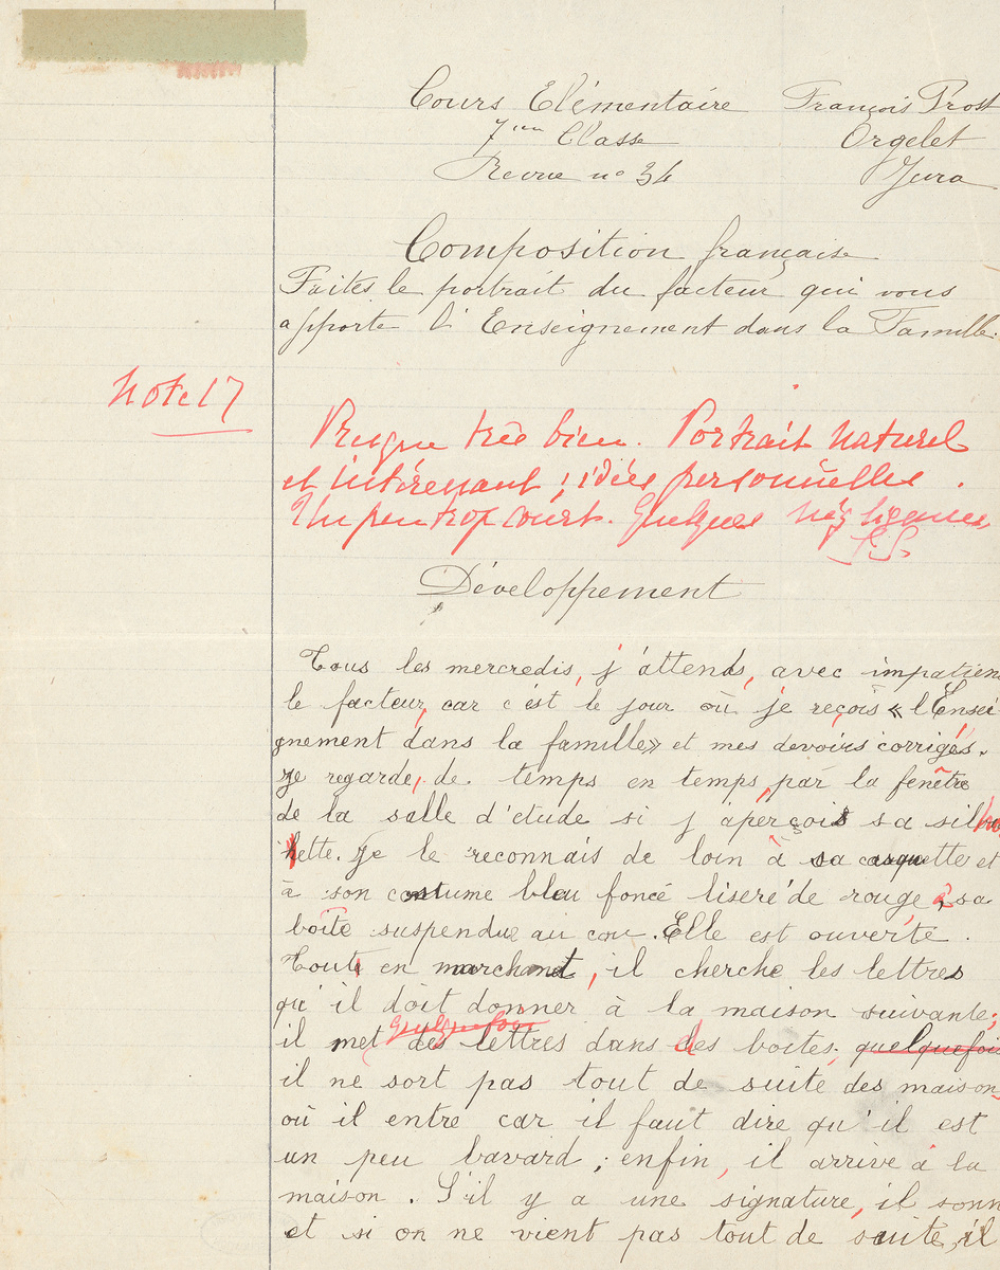 Cours Elémentaire François Prost
7ème Classe Orgelet
Revue n° 34 Jura
Composition française
Faites le portrait du facteur qui vous
apporte l'Enseignement dans la Famille.
Note 17
Presque très bien. Portrait naturel
et intéressant ; idées personnelles.
Un peu trop court. Quelques négligences
Développement
Tous les mercredis, j'attends, avec impatien
le facteur, car c'est le jour où je reçois « l'Ensei-
gnement dans la famille» et mes devoirs corrigés.
Je regarde, de temps en temps, par la fenêtre
de la salle d'étude si j'aperçois sa silho
hette. Je le reconnais de loin à sa casquette et
à son costume bleu foncé liseré de rouge, à sa
boîte suspendue au cou. Elle est ouverte.
Tout en marchant, il cherche les lettres
qu'il doit donner à la maison suivante;
quelquefois
il met des lettres dans les boîtes, quelquefois
il ne sort pas tout de suite des maisons
où il entre car il faut dire qu'il est
un peu bavard ; enfin, il arrive à la
maison. S'il y a une signature, il sonn
et si on ne vient pas tout de suite, il